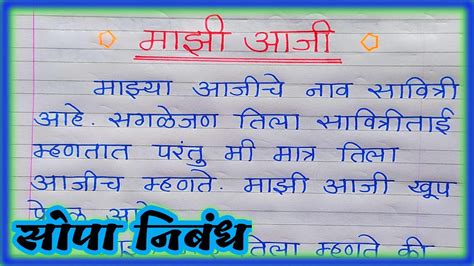 माझी आजी
माझ्या आजीचे नाव सावित्री
आहे. सगळेजण तिला सावित्रीताई
म्हणतात परंतु मी मात्र तिला
आजीच म्हणते. माझी आजी खूप
सोपा निबंध
तिला म्हणते की